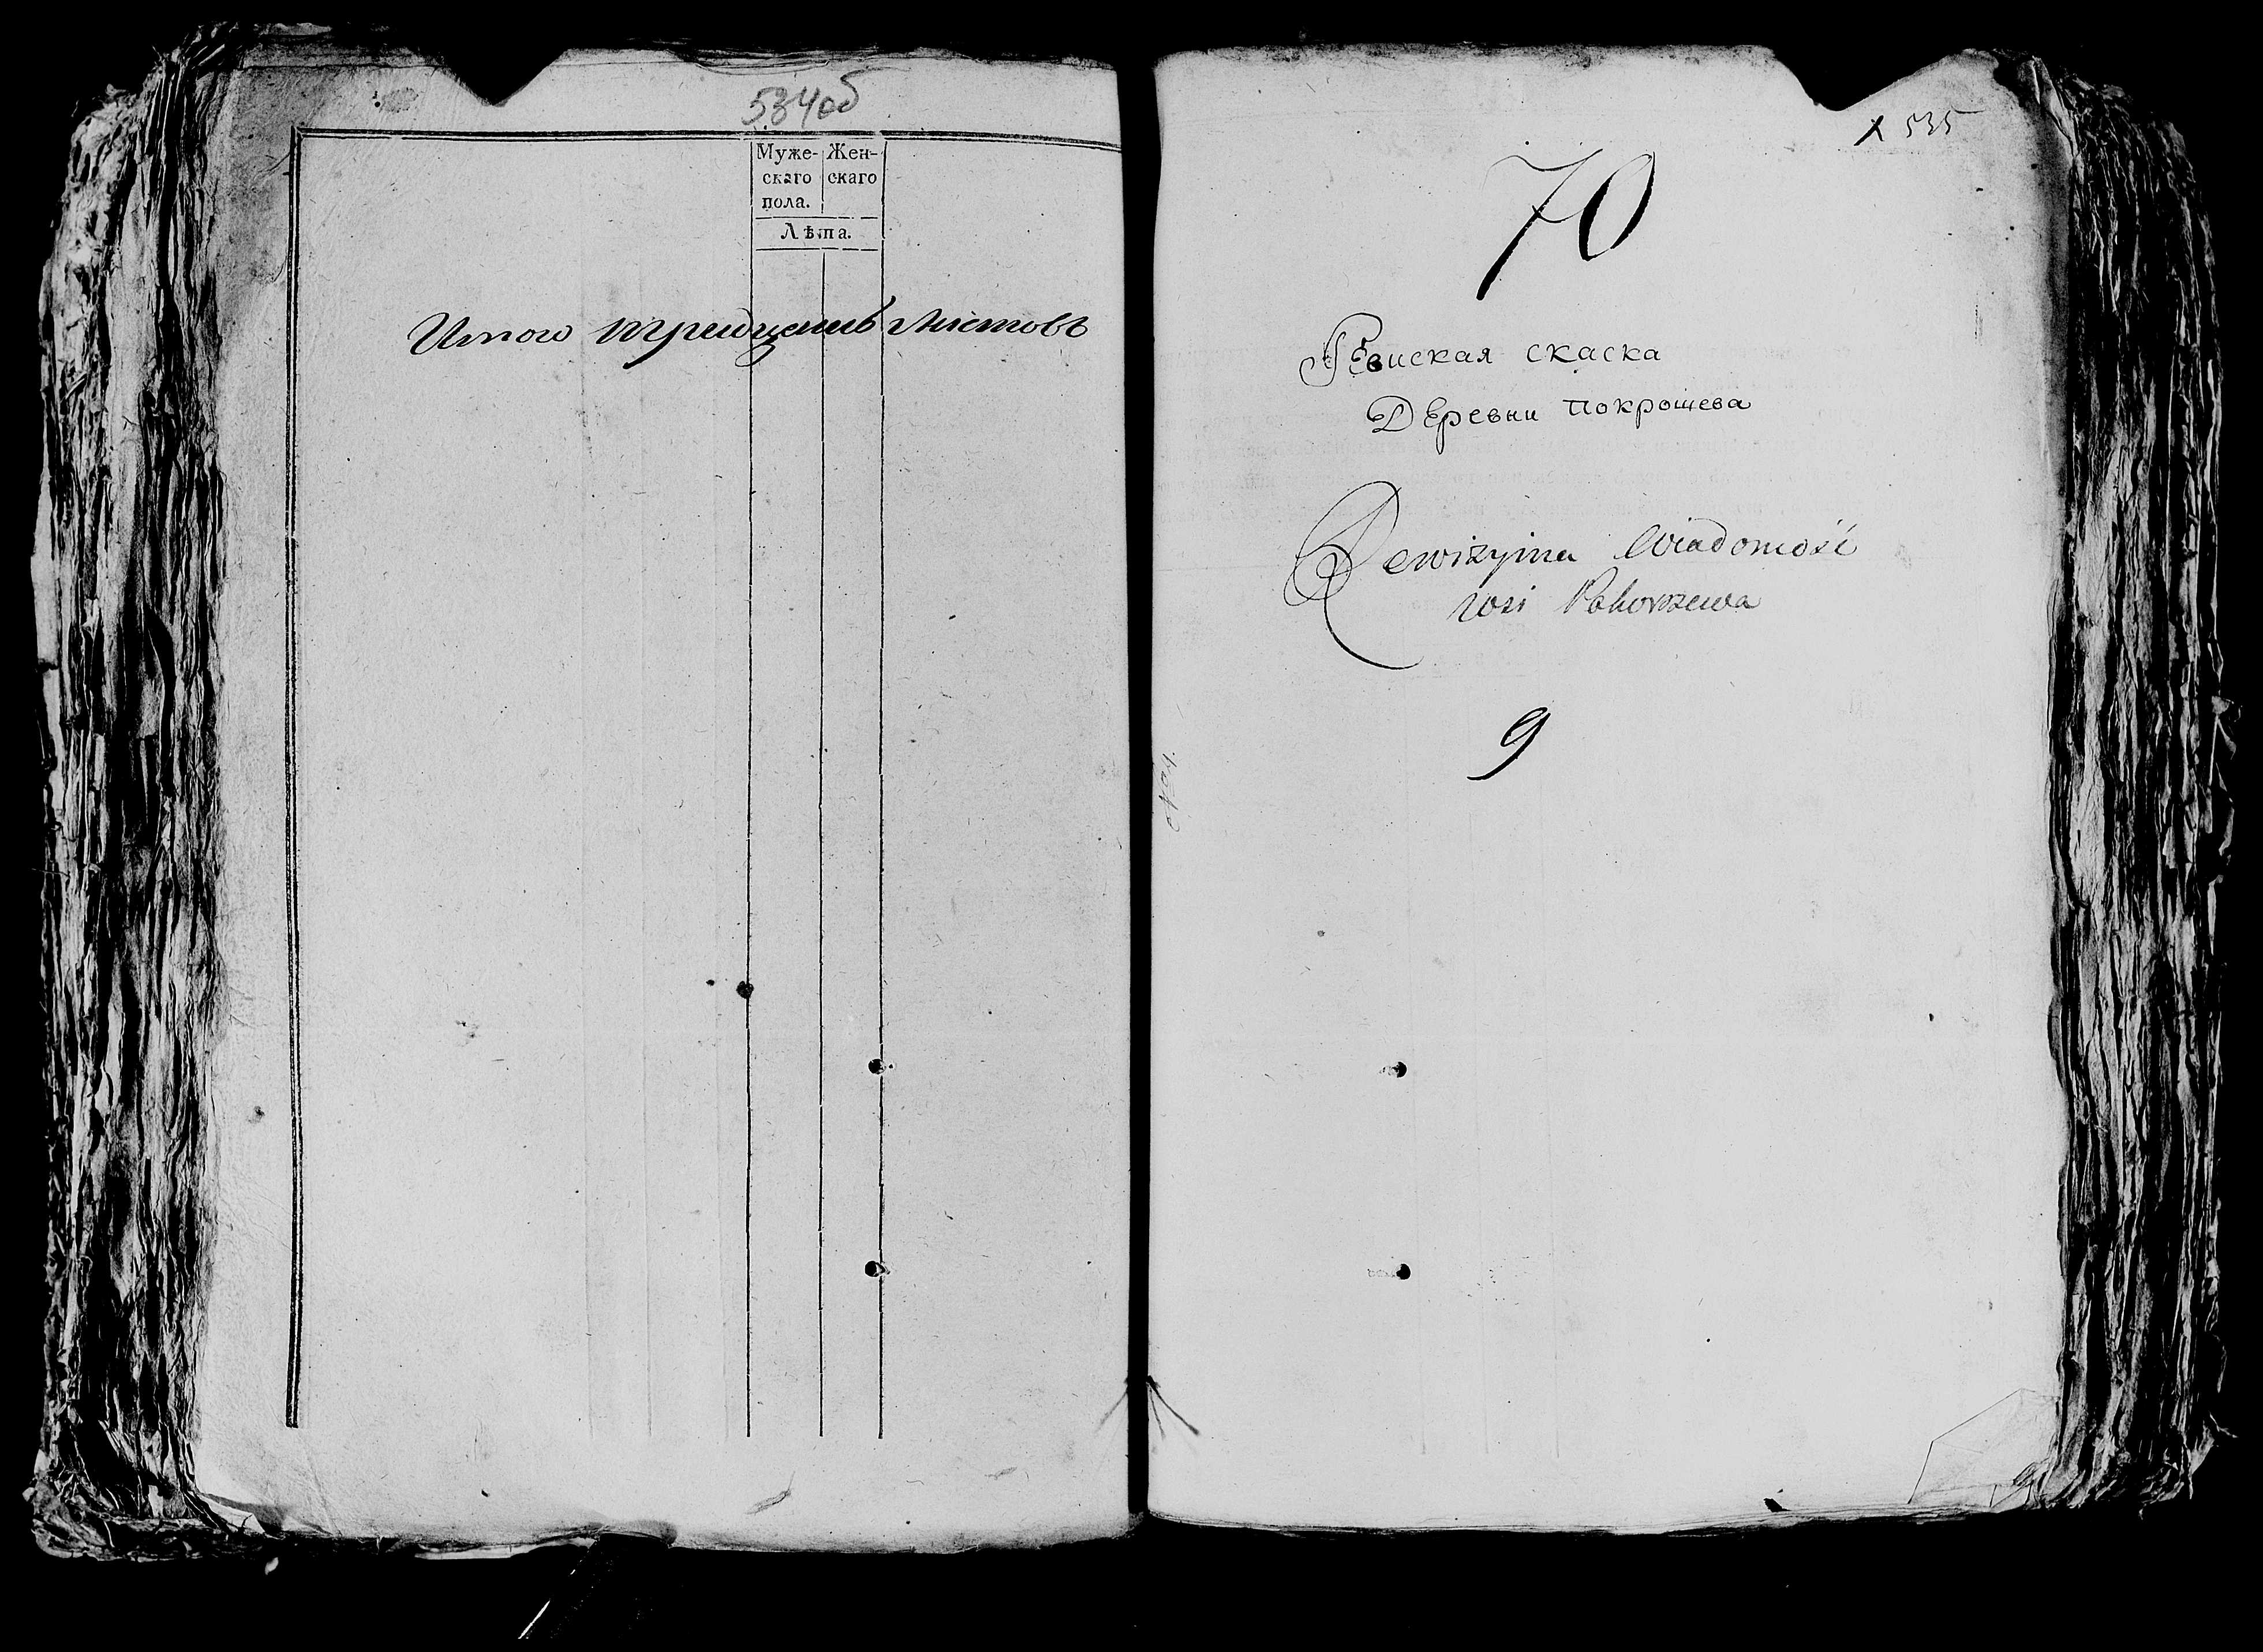 534об
Муже- Жен-
скаго скаго
пола.
Лѣта.
Итого тридцать листовъ
х 535
70
Ревиская скаска
Деревни Покрошева
Rewizyina Wiadomość
wsi Pokorszewa
9